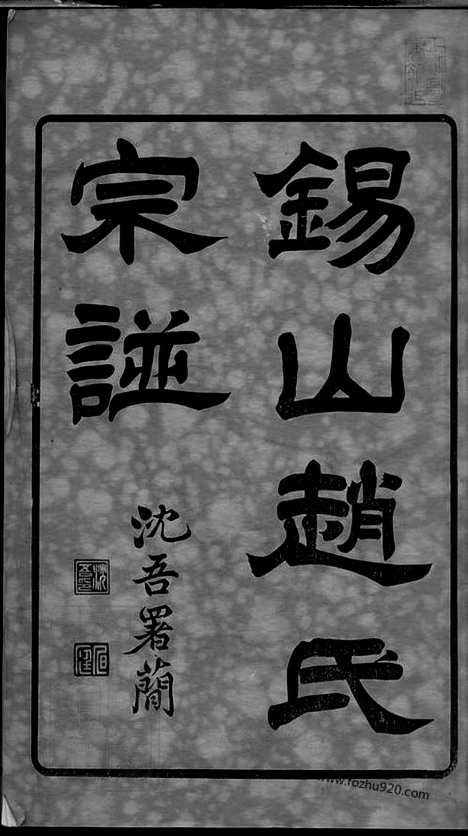 錫山趙氏
宗譜
沈吾署簡
www.fozhu920.com